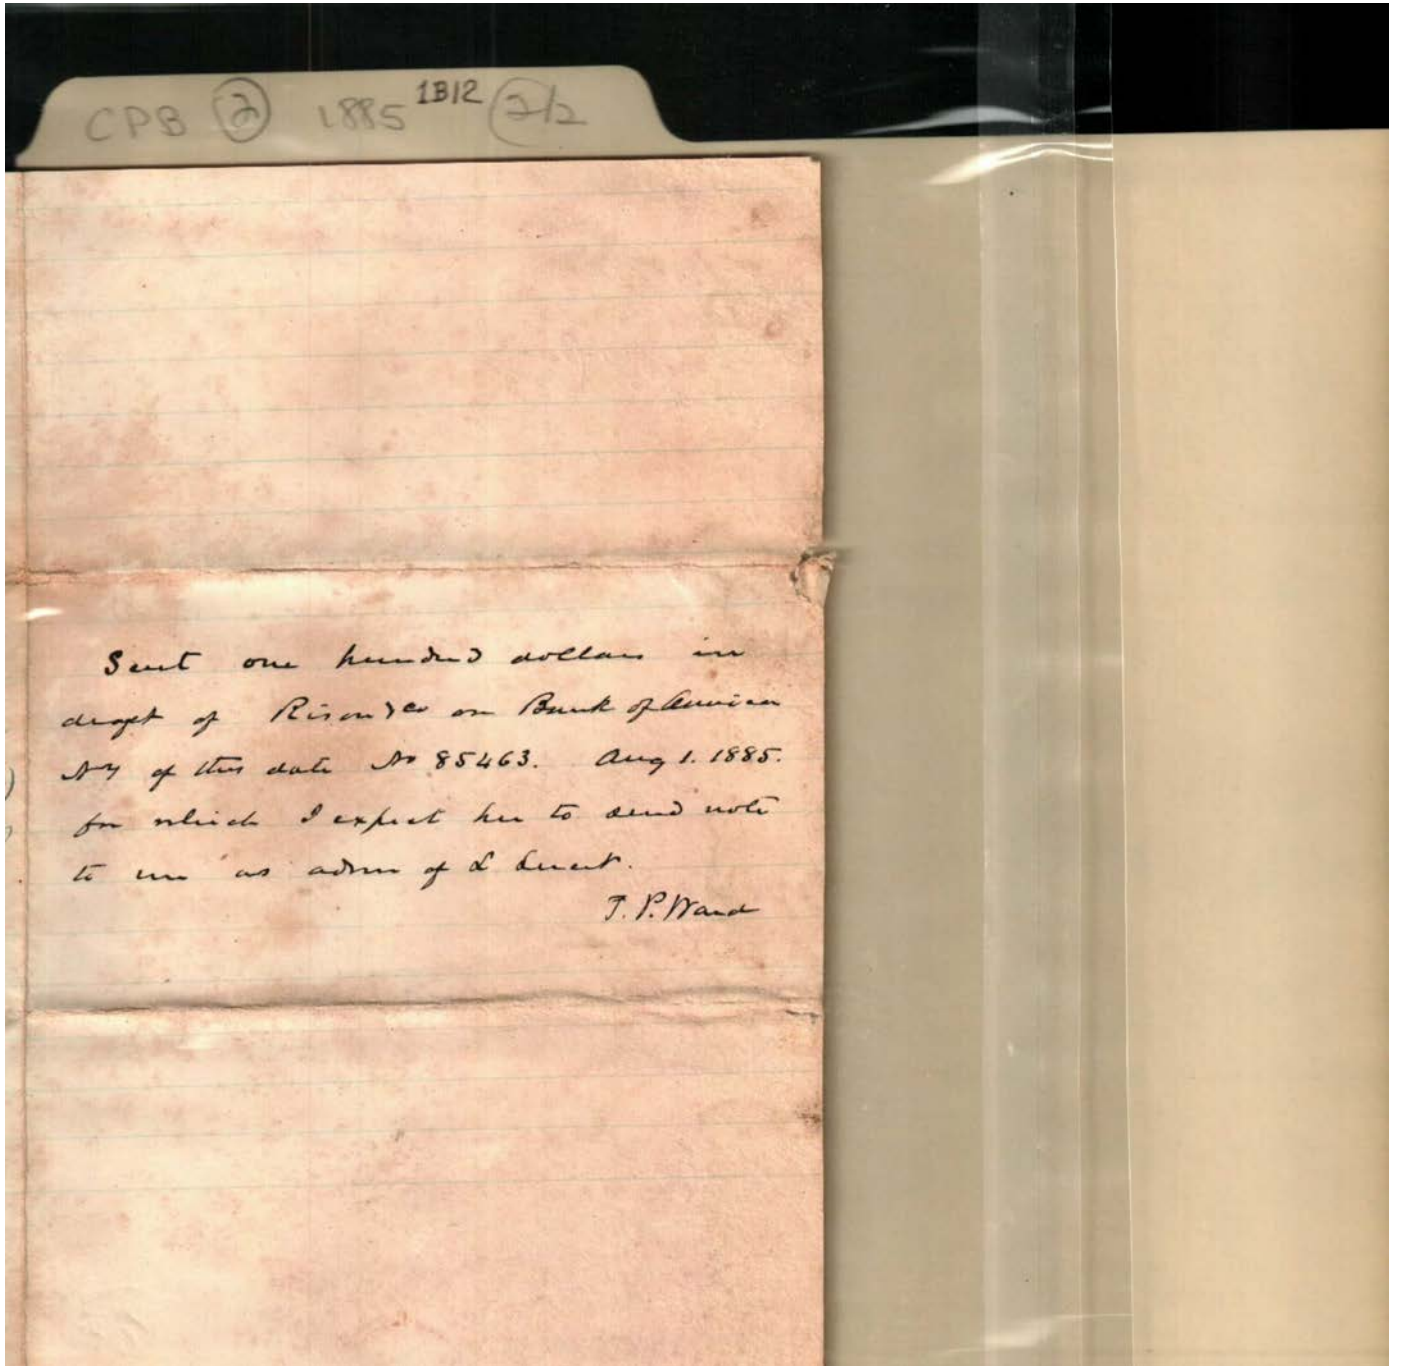 CPB 2 1885 1B12 2/2
Sent one hundred dollars in
draft of Rison & co on Bank of America
NY of this date No 85463. Aug 1. 1885.
for which I expect her to send note
to me as admr of L
T. P. Ward